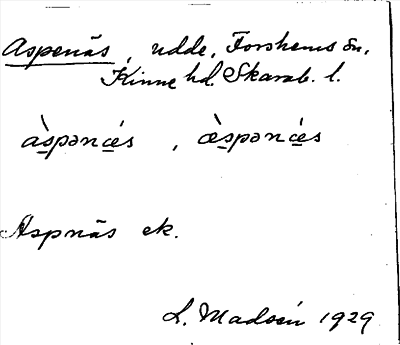 Aspenäs, udde, Forshems sn,
Kinne hd. Skarab. l.
àspənǽs, æ̀spənǽs
Aspnäs ek.
L. Madsén 1929